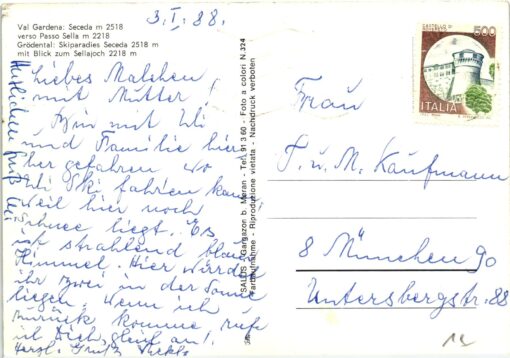 Val Gardena: Seceda m 2518
verso Passo Sella m 2218
Grödental: Skiparadies Seceda 2518 m
mit Blick zum Sellajoch 2218 m
3.I.88.
Liebes Malchen
mit Mutter!
Bin mit Uli
und Familie hier
her gefahren wo
Uli Ski fahren kann
weil hier noch
Schnee liegt. Es
ist strahlend blauer
Himmel. Hier würdet
ihr zwei in der Sonne
liegen. Wenn ich
zurück komme, rufe
ich Dich gleich an!
Herzl. Grüße
Herzlichen Gruß Uli
SALUS - Gargazon b. Meran - Tel. 91 3 60 - Foto a colori N. 324
Farbaufnahme - Riproduzione vietata - Nachdruck verboten
500
ITALIA
Frau
T. u. M. Kaufmann
8 München 90
Untersbergstr. 88